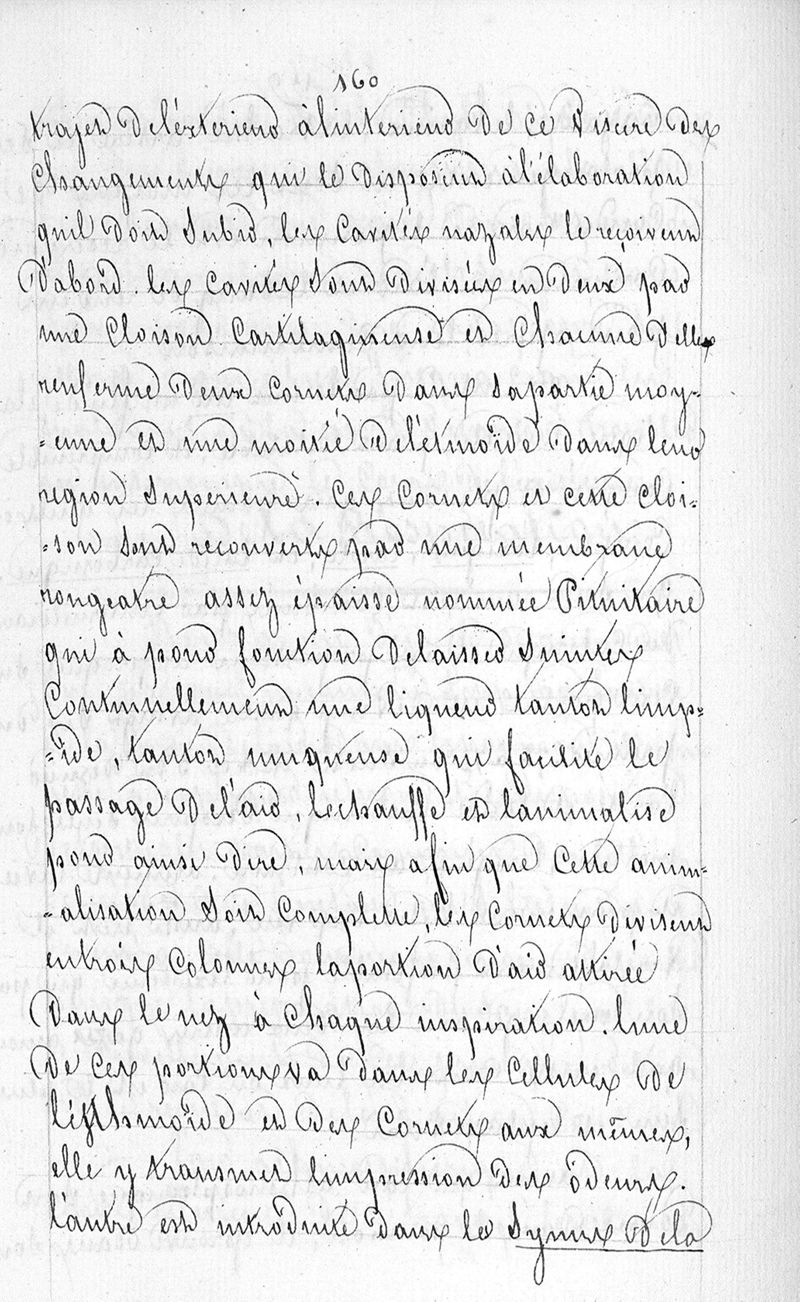 160
trajet del'éxterieur à l'interieur de ce viscère des
Changements qui le disposent à l'élaboration
quil doit subir, les Cavités nazales le reçoivent
d'abord. les Cavités sont divisées en deux par
une Cloison Cartilagineuse et Chacune d'elles
renferme deux Cornets dans sa partie moy-
-enne et une moitié del'étmoïde dans leur
région Superieure. Ces Cornets et cette Cloi-
-son sont recouverts par une membrane
rougeatre assez épaisse nommée Pituitaire
qui à pour fonction delaisser suinter
Continuellement une liqueur tantot limp-
-ide, tantot muqueuse qui facilite le
passage del'air, lechauffe et lanimalise
pour ainsi dire, mais afin que Cette anim-
-alisation soit Complette, les Cornets divisent
entrois Colonnes laportion d'air attirée
dans le nez à Chaque inspiration. lune
de Ces portions va dans les Cellules de
l'éthmoïde et des Cornets aux mêmes,
elle y transmet limpression des ôdeurs.
l'autre est introduite dans le Synus dela